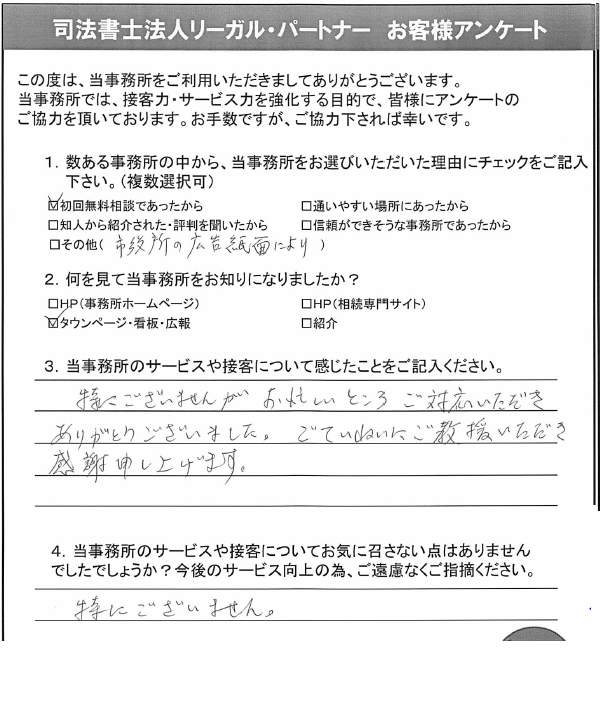 司法書士法人リーガル・パートナー お客様アンケート
この度は、当事務所をご利用いただきましてありがとうございます。
当事務所では、接客力・サービス力を強化する目的で、皆様にアンケートの
ご協力を頂いております。お手数ですが、ご協力下されば幸いです。
1. 数ある事務所の中から、当事務所をお選びいただいた理由にチェックをご記入
下さい。(複数選択可)
☑初回無料相談であったから □通いやすい場所にあったから
□知人から紹介された・評判を聞いたから □信頼ができそうな事務所であったから
□その他( 市役所の広告紙面により )
2. 何を見て当事務所をお知りになりましたか?
□HP(事務所ホームページ) □HP(相続専門サイト)
☑タウンページ・看板・広報 □紹介
3. 当事務所のサービスや接客について感じたことをご記入ください。
特にございませんが お忙しいところ ご対応いただき
ありがとうございました。 ごていねいにご教援いただき
感謝申し上げます。
4. 当事務所のサービスや接客についてお気に召さない点はありません
でしたでしょうか?今後のサービス向上の為、ご遠慮なくご指摘ください。
特にございません。